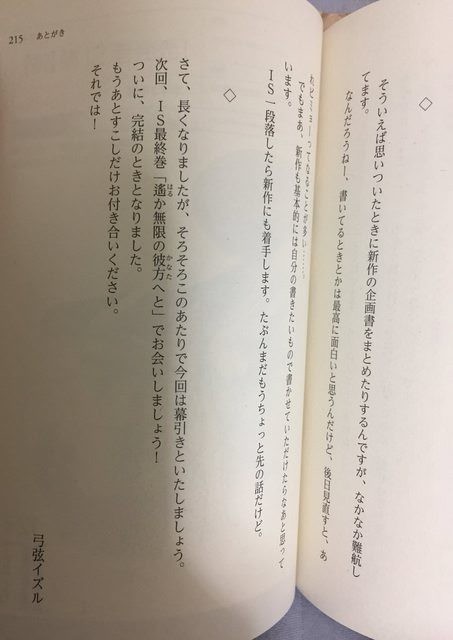 ◇
そういえば思いついたときに新作の企画書をまとめたりするんですが、なかなか難航し
てます。
なんだろうねー、書いてるときとかは最高に面白いと思うんだけど、後日見直すと、あ
れ、ビミョーってなることが多い……。
でもまあ、新作も基本的には自分の書きたいもので書かせていただけたらなあと思って
います。
ＩＳ一段落したら新作にも着手します。たぶんまだもうちょっと先の話だけど。
◇
さて、長くなりましたが、そろそろこのあたりで今回は幕引きといたしましょう。
次回、ＩＳ最終巻「遙か無限の彼方へと」でお会いしましょう！
はる
かなた
ついに、完結のときとなりました。
もうあとすこしだけお付き合いください。
それでは！
弓弦イズル
215
あとがき